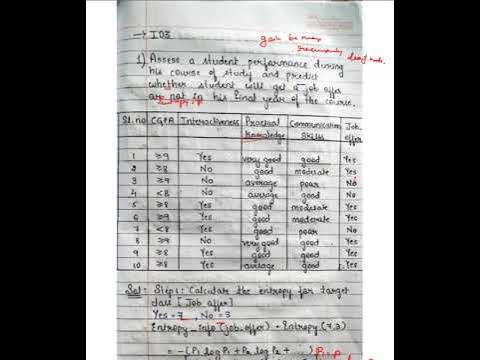 → ID3
gain be max
1) Assess a student performance during
his course of study and predict
whether student will get a job offer
are not in his final year of the course.
Sl.no CGPA Interactiveness Practical Knowledge Communication Skills Job offer
1 ≥9 Yes very good good Yes
2 ≥8 No good moderate Yes
3 ≥9 No average poor No
4 <8 No average good No
5 ≥8 Yes good moderate Yes
6 ≥9 Yes good moderate Yes
7 <8 Yes good poor No
8 ≥9 No very good good Yes
9 ≥8 Yes good good Yes
10 ≥8 Yes average good Yes
Sol: Step1: Calculate the entropy for target
class [Job offer]
Yes = 7, No = 3
Entropy_Info (job_offer) = Entropy (7,3)
= -(P1 log P1 + P2 log P2 + ...)